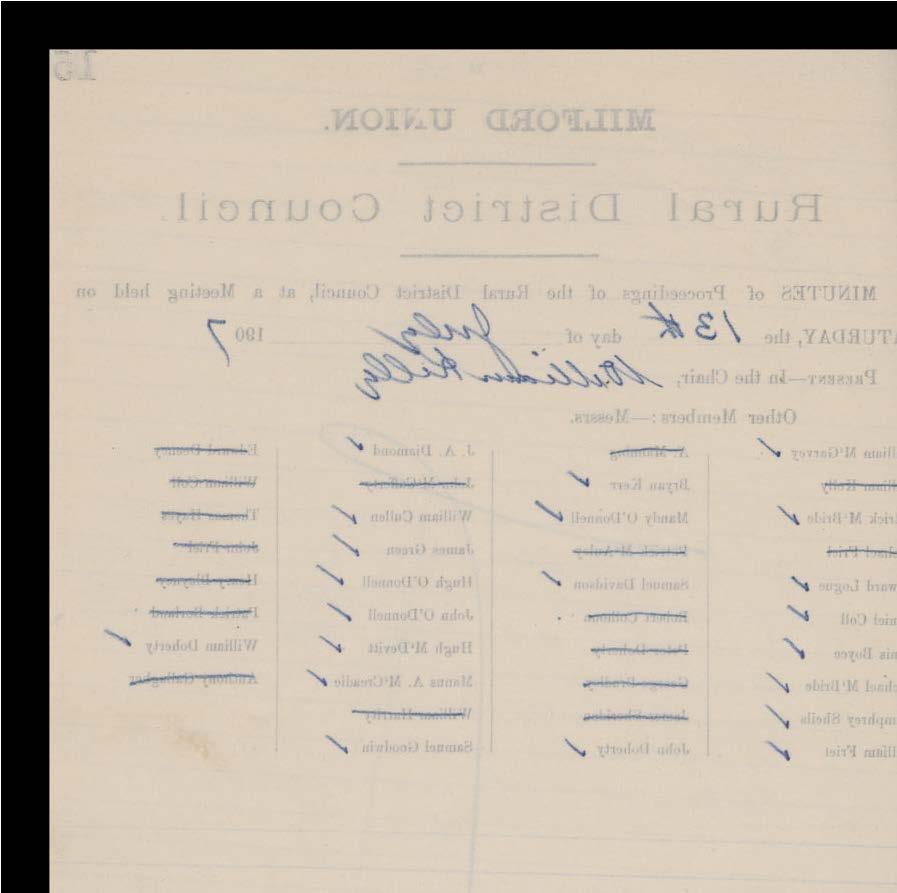 15
MILFORD UNION.
Rural District Council.
MINUTES of Proceedings of the Rural District Council, at a Meeting held on
ATURDAY, the 13th day of July 1907
PRESENT—In the Chair, William Kelly
Other Members:—Messrs.
lliam M'Garvey
lliam Kelly
trick M'Bride
chael Friel
ward Logue
niel Coll
nis Boyce
chael M'Bride
mphrey Sheils
lliam Friel
A. Manning
Bryan Kerr
Mandy O'Donnell
Patrick M'Auley
Samuel Davidson
Robert Colhoun
Peter Doherty
George Bradley
James Sheridan
John Doherty
J. A. Diamond
John M'Cafferty
William Cullen
James Green
Hugh O'Donnell
John O'Donnell
Hugh M'Devitt
Manus A. M'Creadie
William Harrity
Samuel Goodwin
Edward Deeney
William Coll
Thomas Hayes
John Friel
Henry Blayney
Patrick Borland
William Doherty
Anthony Gallagher